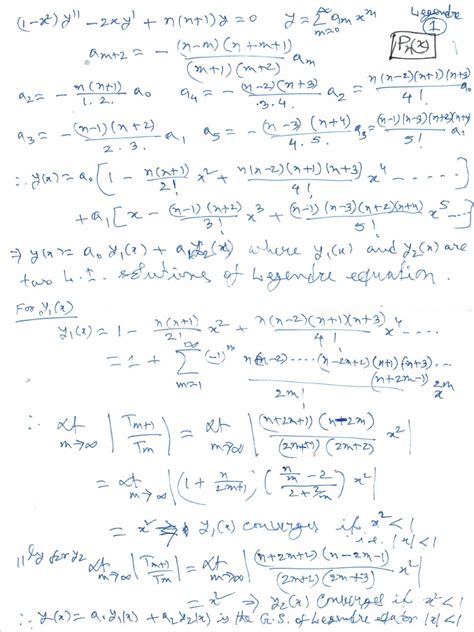 Legendre
(1-x²)y'' - 2xy' + n(n+1)y = 0   y = Σ_{m=0}^{∞} a_m x^m   ①
P_n(x)
a_{m+2} = - (n-m)(n+m+1) / (m+1)(m+2) a_m
a_2 = - n(n+1) / 1.2. a_0   a_4 = - (n-2)(n+3) / 3.4. a_2 = n(n-2)(n+1)(n+3) / 4! a_0
a_3 = - (n-1)(n+2) / 2.3. a_1   a_5 = - (n-3)(n+4) / 4.5. a_3 = (n-1)(n-3)(n+2)(n+4) / 5! a_1
∴ y(x) = a_0 [ 1 - n(n+1)/2! x² + n(n-2)(n+1)(n+3)/4! x⁴ ----- ]
+ a_1 [ x - (n-1)(n+2)/3! x³ + (n-1)(n-3)(n+2)(n+4)/5! x⁵ --- ]
⇒ y(x) = a_0 y_1(x) + a_1 y_2(x) where y_1(x) and y_2(x) are
two L.I. solutions of Legendre equation.
For y_1(x)
y_1(x) = 1 - n(n+1)/2! x² + n(n-2)(n+1)(n+3)/4! x⁴ ----
= 1 + Σ_{m=1}^{∞} (-1)^m n(n-2)----(n-2m+2)(n+1)(n+3)---(n+2m-1) / 2m! x^{2m}
∴ Lt_{m→∞} | T_{m+1} / T_m | = Lt_{m→∞} | (n+2m+1)(n-2m) / (2m+1)(2m+2) x² |
= Lt_{m→∞} | (1 + n/2m+1) ( n/m - 2 / 2 + 2/m ) x² |
= x² ⇒ y_1(x) converges if x² < 1
i.e. |x| < 1
||ly for y_2 Lt_{m→∞} | T_{m+1} / T_m | = Lt_{m→∞} | (n+2m+2)(n-2m-1) / (2m+2)(2m+3) x² |
= x² ⇒ y_2(x) converges if x² < 1
∴ y(x) = a_1 y_1(x) + a_2 y_2(x) is the G.S. of Legendre |x| < 1